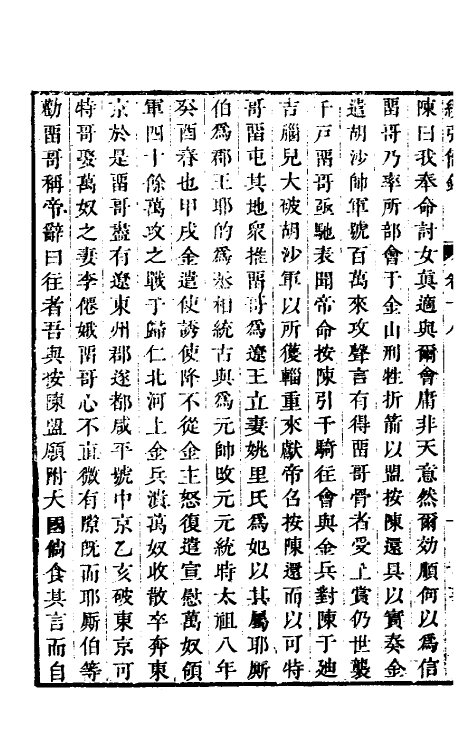 陳曰我奉命討女真適與爾會庸非天意然爾効順何以為信
畱哥乃率所部會于金山刑牲折箭以盟按陳還具以實奏金
遣胡沙帥軍號百萬來攻聲言有得畱哥骨者受上賞仍世襲
千戸畱哥亟馳表聞帝命按陳引千騎往會與金兵對陳于廸
吉腦兒大破胡沙軍以所獲輜重來獻帝召按陳還而以可特
哥畱屯其地眾推畱哥為遼王立妻姚里氏為妃以其屬耶厮
伯為郡王耶的為丞相統古與為元帥改元元統時太祖八年
癸酉春也甲戌金遣使誘使降不從金主怒復遣宣慰萬奴領
軍四十餘萬攻之戰于歸仁北河上金兵潰萬奴收散卒奔東
京於是畱哥盡有遼東州郡遂都咸平號中京乙亥破東京可
特哥娶萬奴之妻李僊娥畱哥心不直微有隙既而耶厮伯等
勸畱哥稱帝辭曰往者吾與按陳盟願附大國儻食其言而自